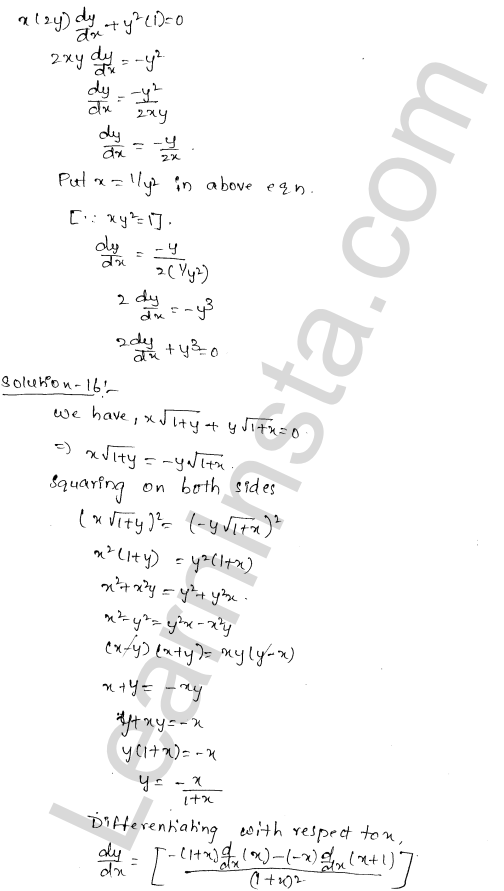 x(2y) dy/dx + y²(1)=0
2xy dy/dx = -y²
dy/dx = -y²/2xy
dy/dx = -y/2x.
Put x = 1/y² in above eqn.
[∵ xy²=1].
dy/dx = -y/2(1/y²)
2 dy/dx = -y³
2dy/dx + y³=0
Solution-16:-
we have, x√1+y + y√1+x=0.
=) x√1+y = -y√1+x.
Squaring on both sides
(x√1+y)² = (-y√1+x)²
x²(1+y) = y²(1+x)
x²+x²y = y²+y²x.
x²-y² = y²x-x²y
(x-y)(x+y)= xy(y-x)
x+y= -xy
y+xy=-x
y(1+x)=-x
y= -x/1+x
Differentiating with respect to x,
dy/dx = [-(1+x) d/dx (x) - (-x) d/dx (x+1)/(1+x)²]
LearnInsta.com